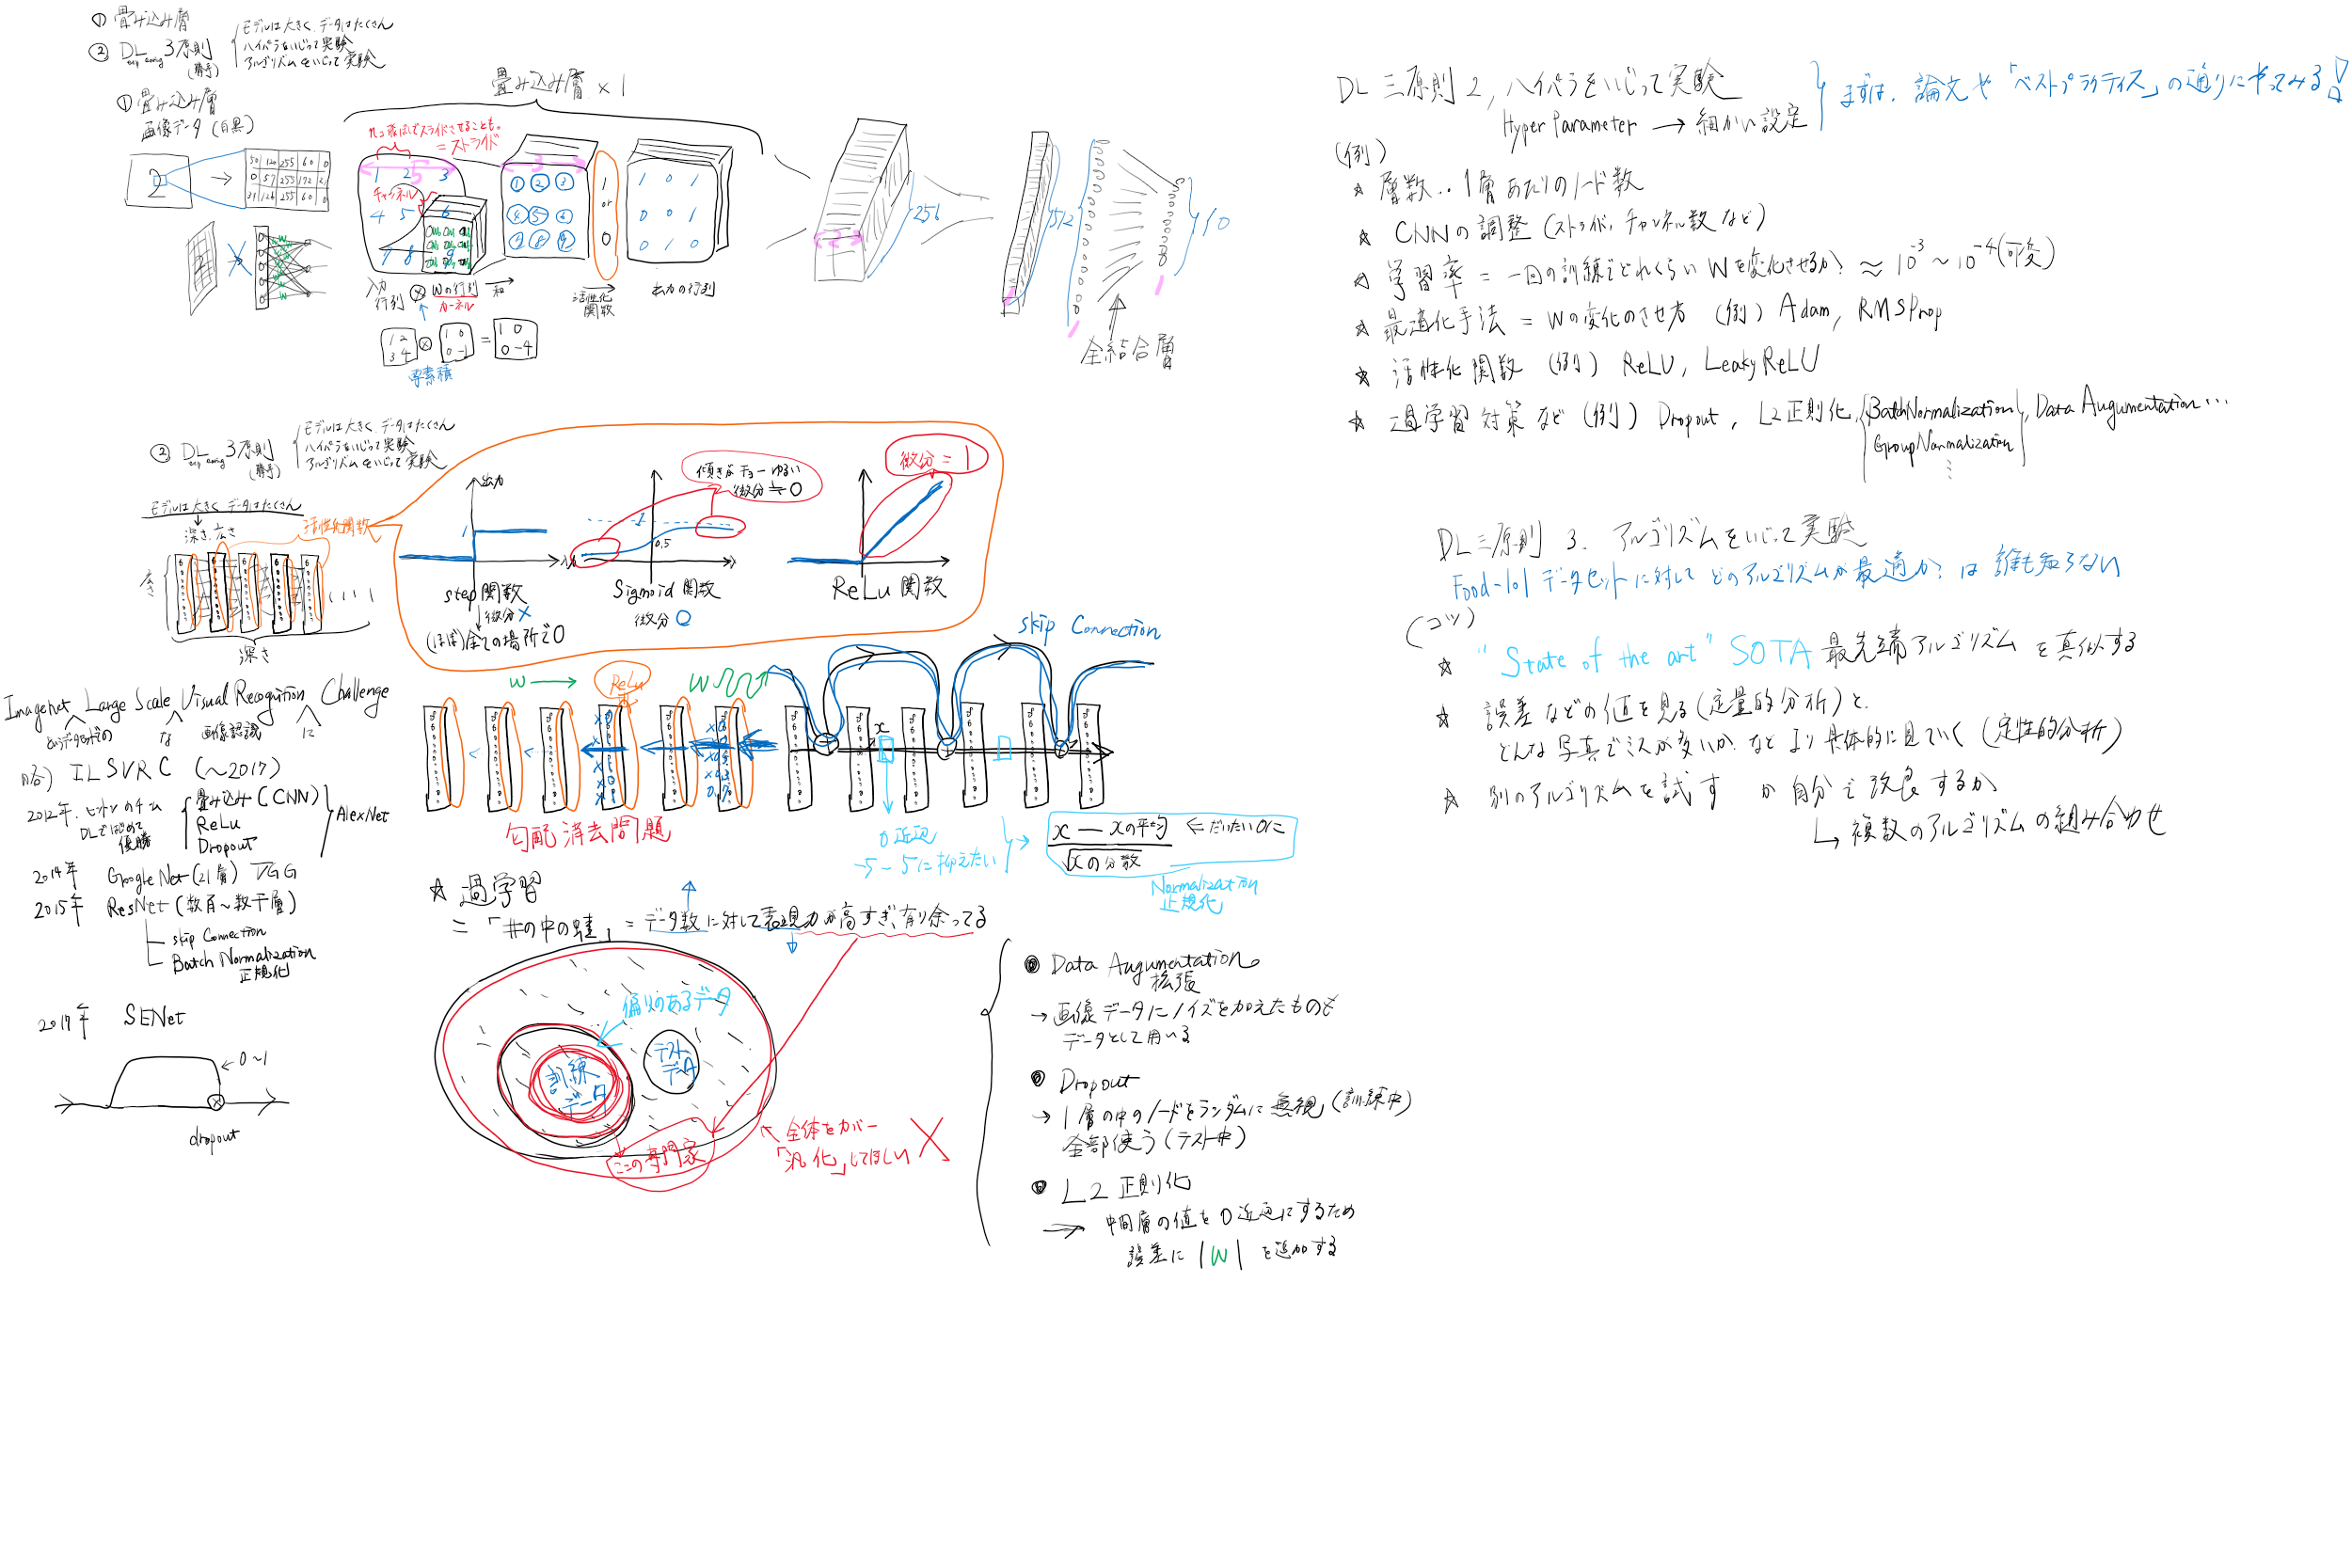 ① 畳み込み層
② DL 3原則 (勝手)
モデルは大きく データはたくさん
ハイパラをいじって実験
アルゴリズムをいじって実験
① 畳み込み層
画像データ (白黒)
畳み込み層 × 1
スライドさせることも。
= ストライド
チャンネル
入力行列 ⊗ Wの行列 → 和
カーネル
活性化関数
出力の行列
1 or 0
1 0 1
0 0 1
0 1 0
256
512
10
全結合層
1 2
3 4
⊗
1 0
0 -1
=
1 0
0 -4
要素積
② DL 3原則 (勝手)
モデルは大きく データはたくさん
ハイパラをいじって実験
アルゴリズムをいじって実験
モデルは大きく データはたくさん
深さ、広さ
活性化関数
広さ
深さ
出力
入力
step関数
微分 ×
(ほぼ)全ての場所で0
傾きがチョーゆるい
微分≒0
0.5
Sigmoid 関数
微分 〇
微分 = 1
ReLu 関数
Imagenet Large Scale Visual Recognition Challenge
というデータセットの
な
画像認識
に
略) ILSVRC (〜2017)
2012年. ヒントンのチーム
DLではじめて
優勝
畳み込み (CNN)
ReLu
Dropout
AlexNet
2014年 GoogleNet (21層) VGG
2015年 ResNet (数百〜数千層)
skip Connection
Batch Normalization
正規化
2017年 SENet
0〜1
dropout
W →
ReLu
W
skip Connection
x
勾配消失問題
0近辺
-5 〜 5に抑えたい
x − xの平均
√xの分散
← だいたい0に
Normalization
正規化
☆ 過学習
= 「井の中の蛙」 = データ数に対して表現力が高すぎ、有り余ってる
偏りのあるデータ
訓練データ
テストデータ
ここの専門家
全体をカバー
「汎化」してほしい ×
Data Augumentation
拡張
→ 画像データにノイズを加えたものも
データとして用いる
Dropout
→ 1層の中のノードをランダムに無視 (訓練中)
全部使う (テスト中)
L2 正則化
→ 中間層の値を0近辺にするため
誤差に |W| を追加する
DL三原則 2, ハイパラをいじって実験
Hyper Parameter → 細かい設定
まずは、論文や「ベストプラクティス」の通りにやってみる!
(例)
☆ 層数、1層あたりのノード数
☆ CNNの調整 (ストライド、チャンネル数など)
☆ 学習率 = 一回の訓練でどれくらいWを変化させるか? ≈ 10^-3 〜 10^-4 (可変)
☆ 最適化手法 = Wの変化のさせ方 (例) Adam, RMSProp
☆ 活性化関数 (例) ReLU, LeakyReLU
☆ 過学習対策など (例) Dropout, L2正則化, BatchNormalization, Data Augumentation…
GroupNormalization
DL三原則 3. アルゴリズムをいじって実験
Food-101データセットに対してどのアルゴリズムが最適か?は誰も知らない
(コツ)
☆ "State of the art" SOTA 最先端アルゴリズムを真似する
☆ 誤差などの値を見る (定量的分析) と、
どんな写真でミスが多いか、などより具体的に見ていく (定性的分析)
☆ 別のアルゴリズムを試す か 自分で改良するか
↳ 複数のアルゴリズムの組み合わせ